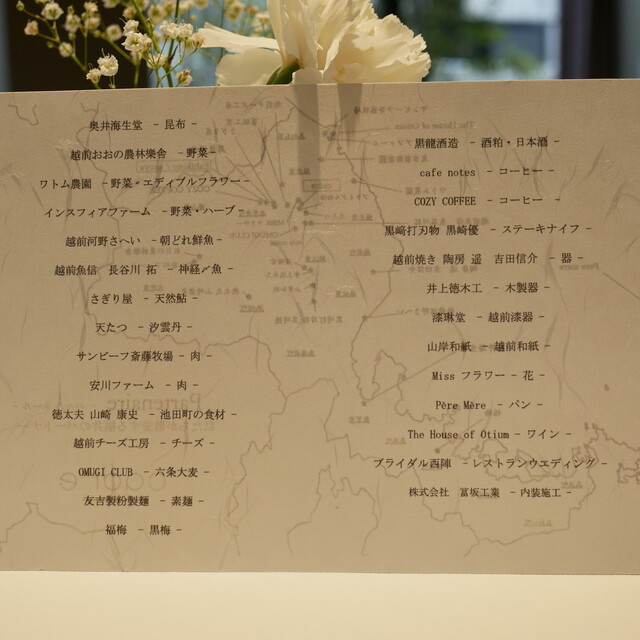 奥井海生堂 - 昆布 -
越前おおの農林樂舎 - 野菜 -
ワトム農園 - 野菜・エディブルフラワー -
インスフィアファーム - 野菜・ハーブ -
越前河野さへい - 朝どれ鮮魚 -
越前魚信 長谷川 拓 - 神経〆魚 -
さぎり屋 - 天然鮎 -
天たつ - 汐雲丹 -
サンビーフ斎藤牧場 - 肉 -
安川ファーム - 肉 -
徳太夫 山崎 康史 - 池田町の食材 -
越前チーズ工房 - チーズ -
OMUGI CLUB - 六条大麦 -
友吉製粉製麺 - 素麺 -
福梅 - 黒梅 -
黒龍酒造 - 酒粕・日本酒 -
cafe notes - コーヒー -
COZY COFFEE - コーヒー -
黒﨑打刃物 黒﨑優 - ステーキナイフ -
越前焼き 陶房 遥 吉田信介 - 器 -
井上徳木工 - 木製器 -
漆琳堂 - 越前漆器 -
山岸和紙 - 越前和紙 -
Miss フラワー - 花 -
Père Mère - パン -
The House of Otium - ワイン -
ブライダル西陣 - レストランウエディング -
株式会社 冨坂工業 - 内装施工 -